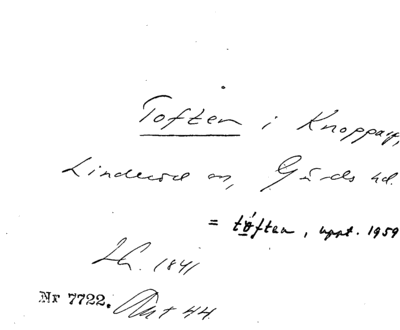 Toften i Knopparp,
Linderöd sn, Gärds hd.
= tóften, uppt. 1959
1841
Nr 7722. Akt 44